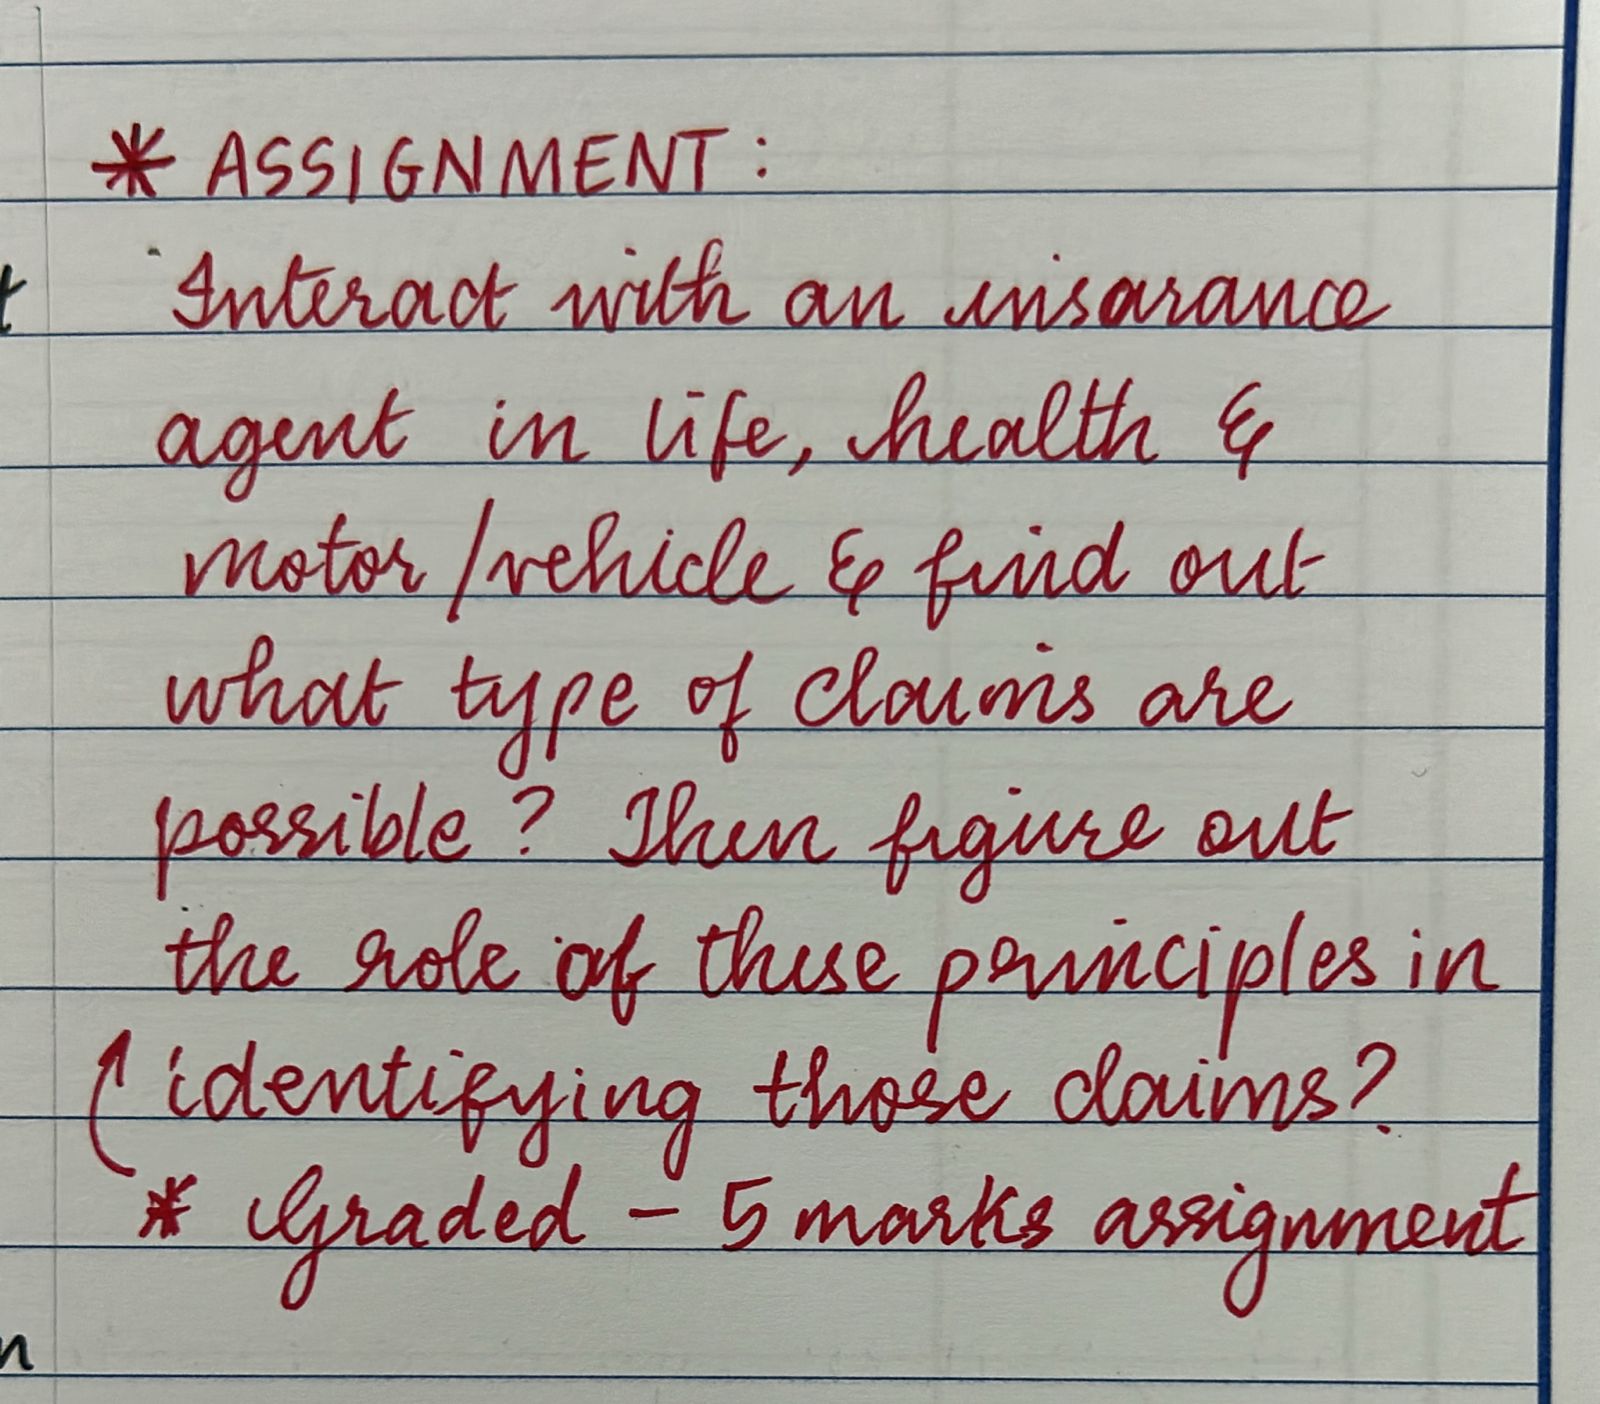 * ASSIGNMENT:
Interact with an insarance
agent in life, health &
motor/vehicle & find out
what type of claims are
possible? Then figure out
the role of these principles in
identifying those claims?
* Graded - 5 marks assignment